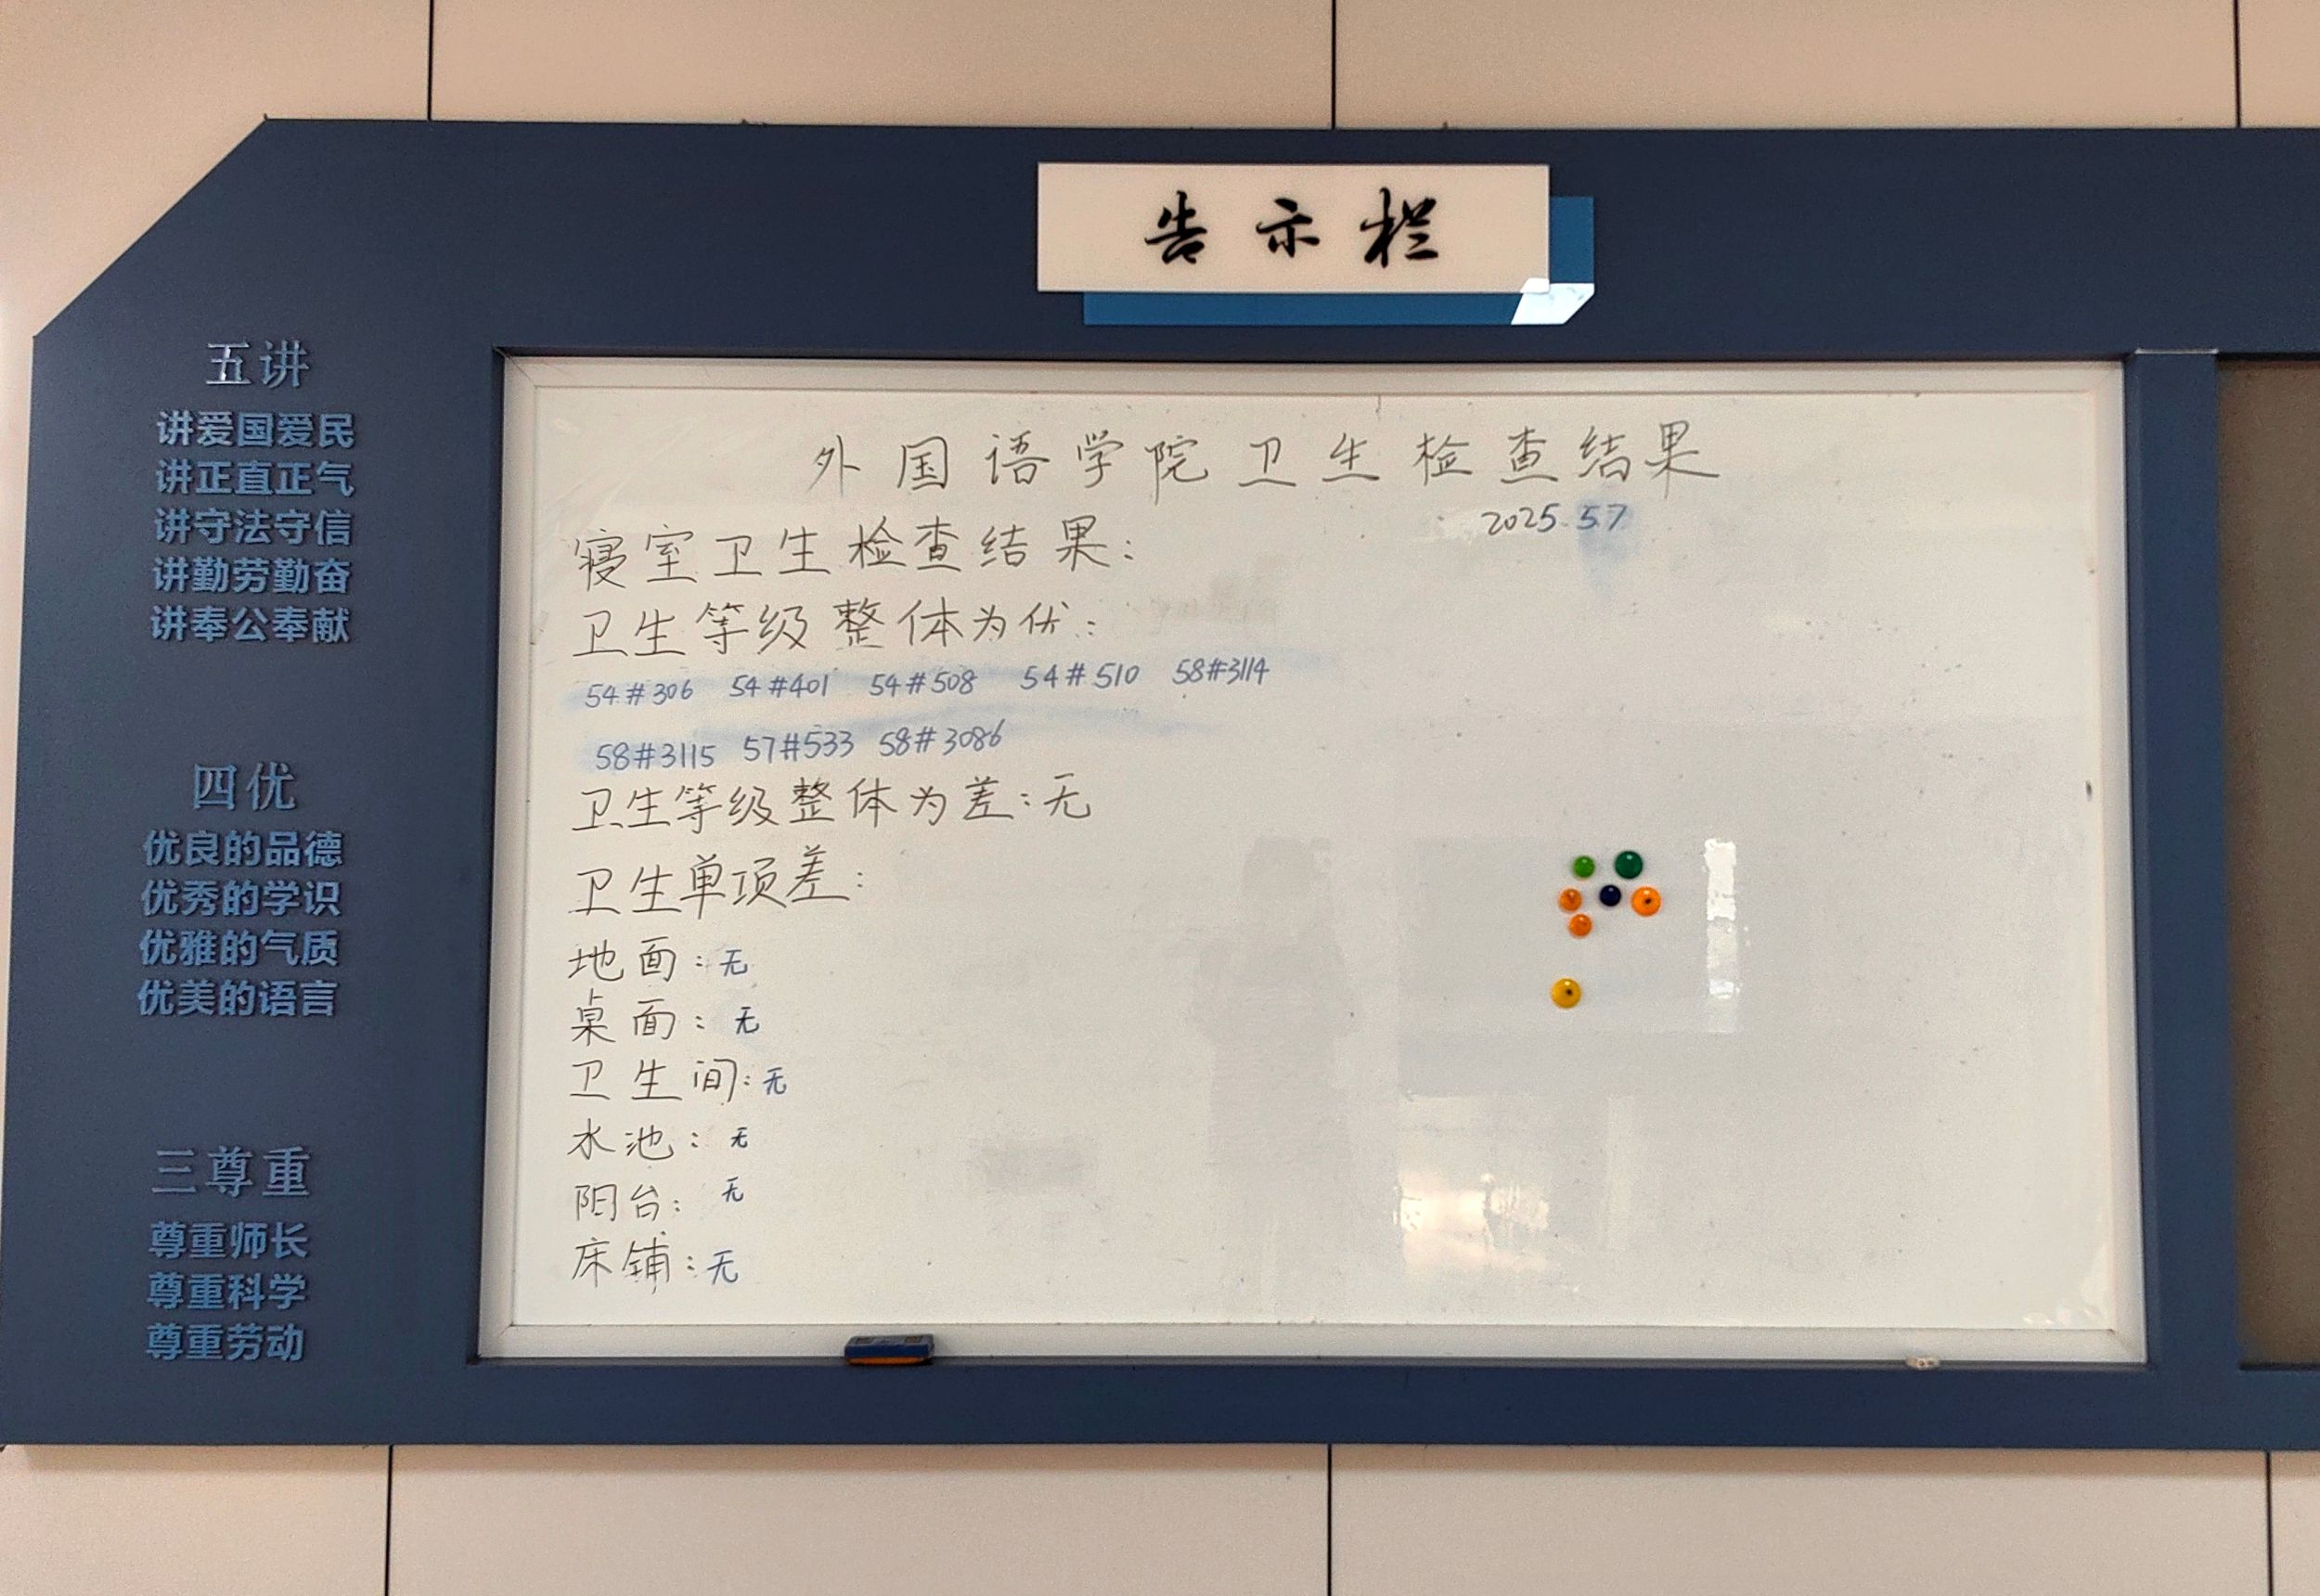 告示栏
五讲
讲爱国爱民
讲正直正气
讲守法守信
讲勤劳勤奋
讲奉公奉献
四优
优良的品德
优秀的学识
优雅的气质
优美的语言
三尊重
尊重师长
尊重科学
尊重劳动
外国语学院卫生检查结果
2025.5.7
寝室卫生检查结果：
卫生等级整体为优：
54#306 54#401 54#508 54#510 58#3114
58#3115 57#533 58#3086
卫生等级整体为差：无
卫生单项差：
地面：无
桌面：无
卫生间：无
水池：无
阳台：无
床铺：无